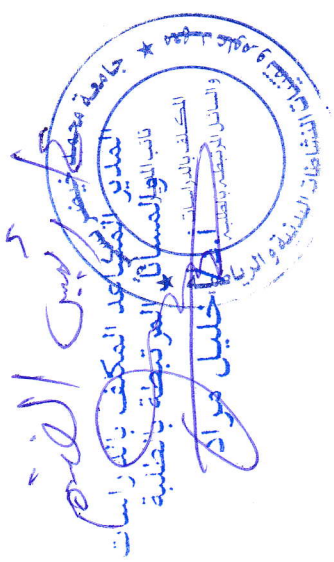 جامعة محمد خيضر
معهد علوم و تقنيات النشاطات البدنية و الرياضية
نائب المدير
المكلف بالدراسات
والمسائل المرتبطة بالطلبة
المدير المساعد المكلف بالدراسات
والمسائل المرتبطة بالطلبة
خليل مراد